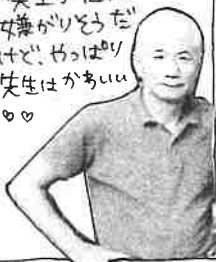 嫌がりそうだ
けど、やっぱり
先生はかわいい
♡♡